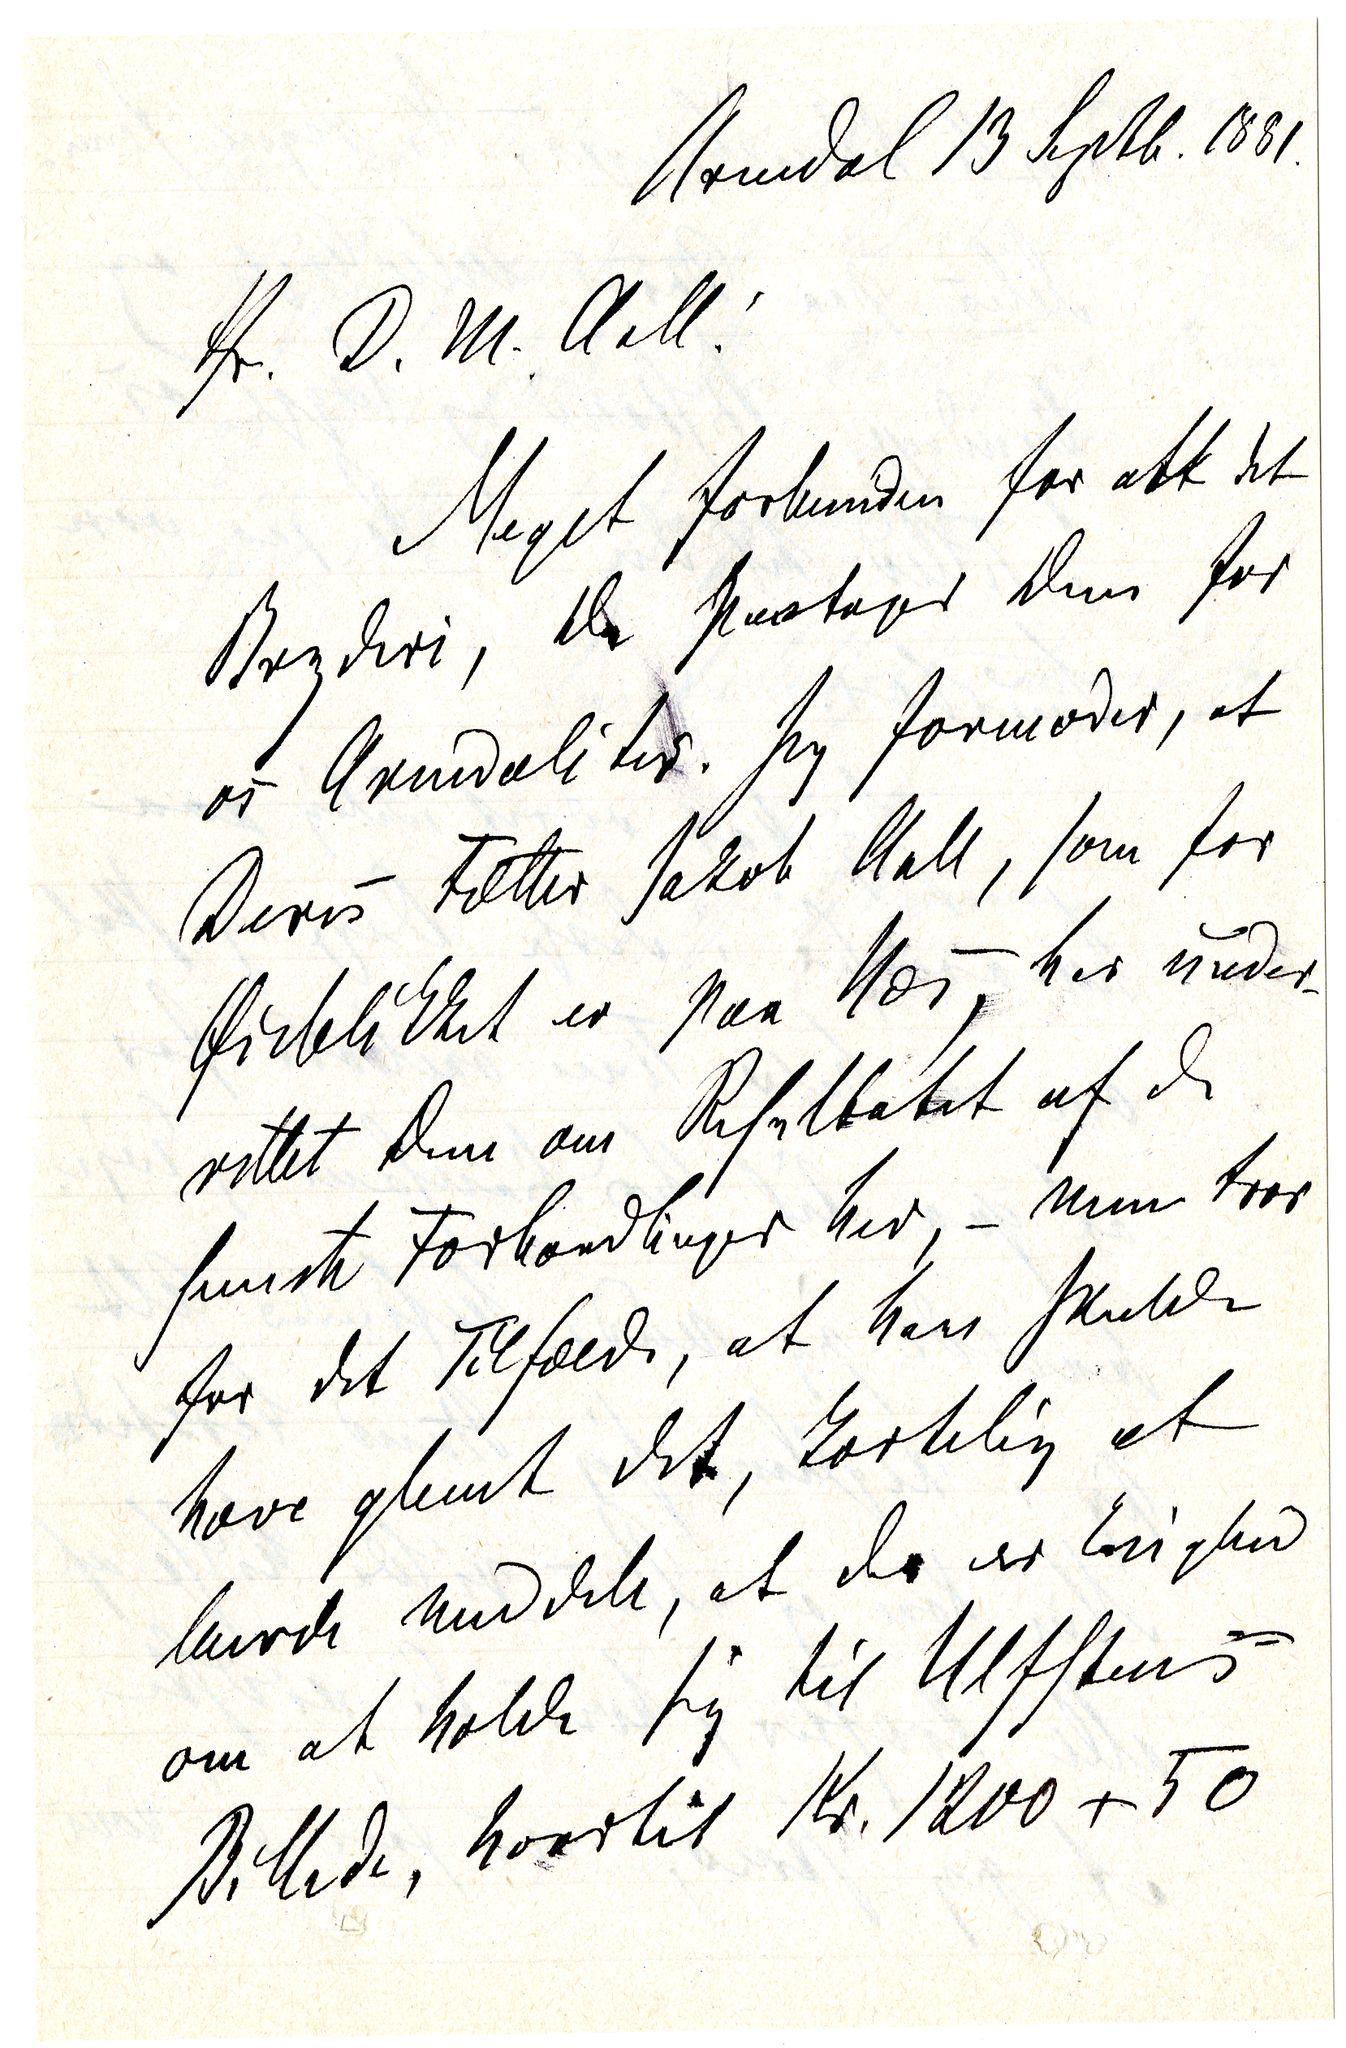 Arendal 13 Septb. 1881.
Hr. D. M. Aall!
Meget forbunden for alt det
Bryderi, De paatager Dem for
os Arendaliter. Jeg formoder, at
Deres Fætter Jakob Aall, som for
Øieblikket er paa Næs, har under-
rettet Dem om Resultatet af de
seneste Forhandlinger her, – men tror
for det Tilfælde, at han skulde
have glemt det, kortelig at
burde meddele, at der er Enighed
om at holde sig til Ulfstens
Billede, hvortil Kr. 1200 + 50